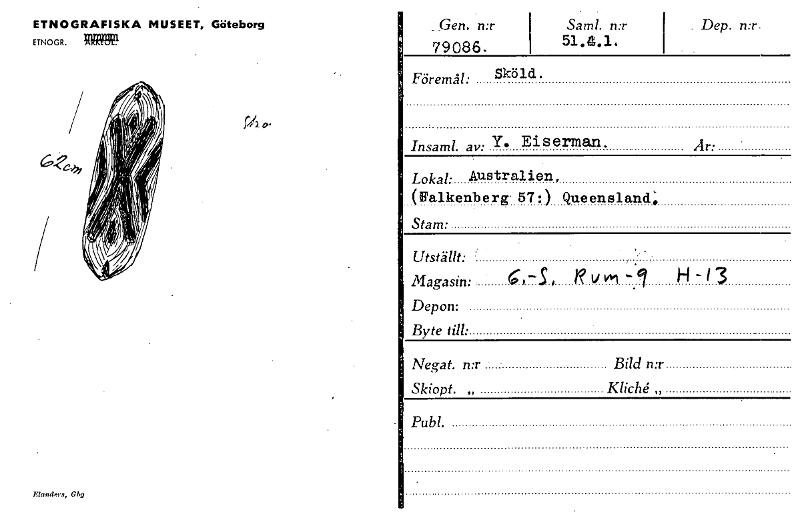 ETNOGRAFISKA MUSEET, Göteborg
ETNOGR. ARKEOL.
62cm
Elanders, Gbg
Gen. n:r Saml. n:r Dep. n:r
79086. 51.4.1.
Föremål: Sköld.
Insaml. av: Y. Eiserman. År:
Lokal: Australien.
(Falkenberg 57:) Queensland.
Stam:
Utställt:
Magasin: 6.-S. Rum-9 H-13
Depon:
Byte till:
Negat. n:r Bild n:r
Skiopt. „ Kliché „
Publ.